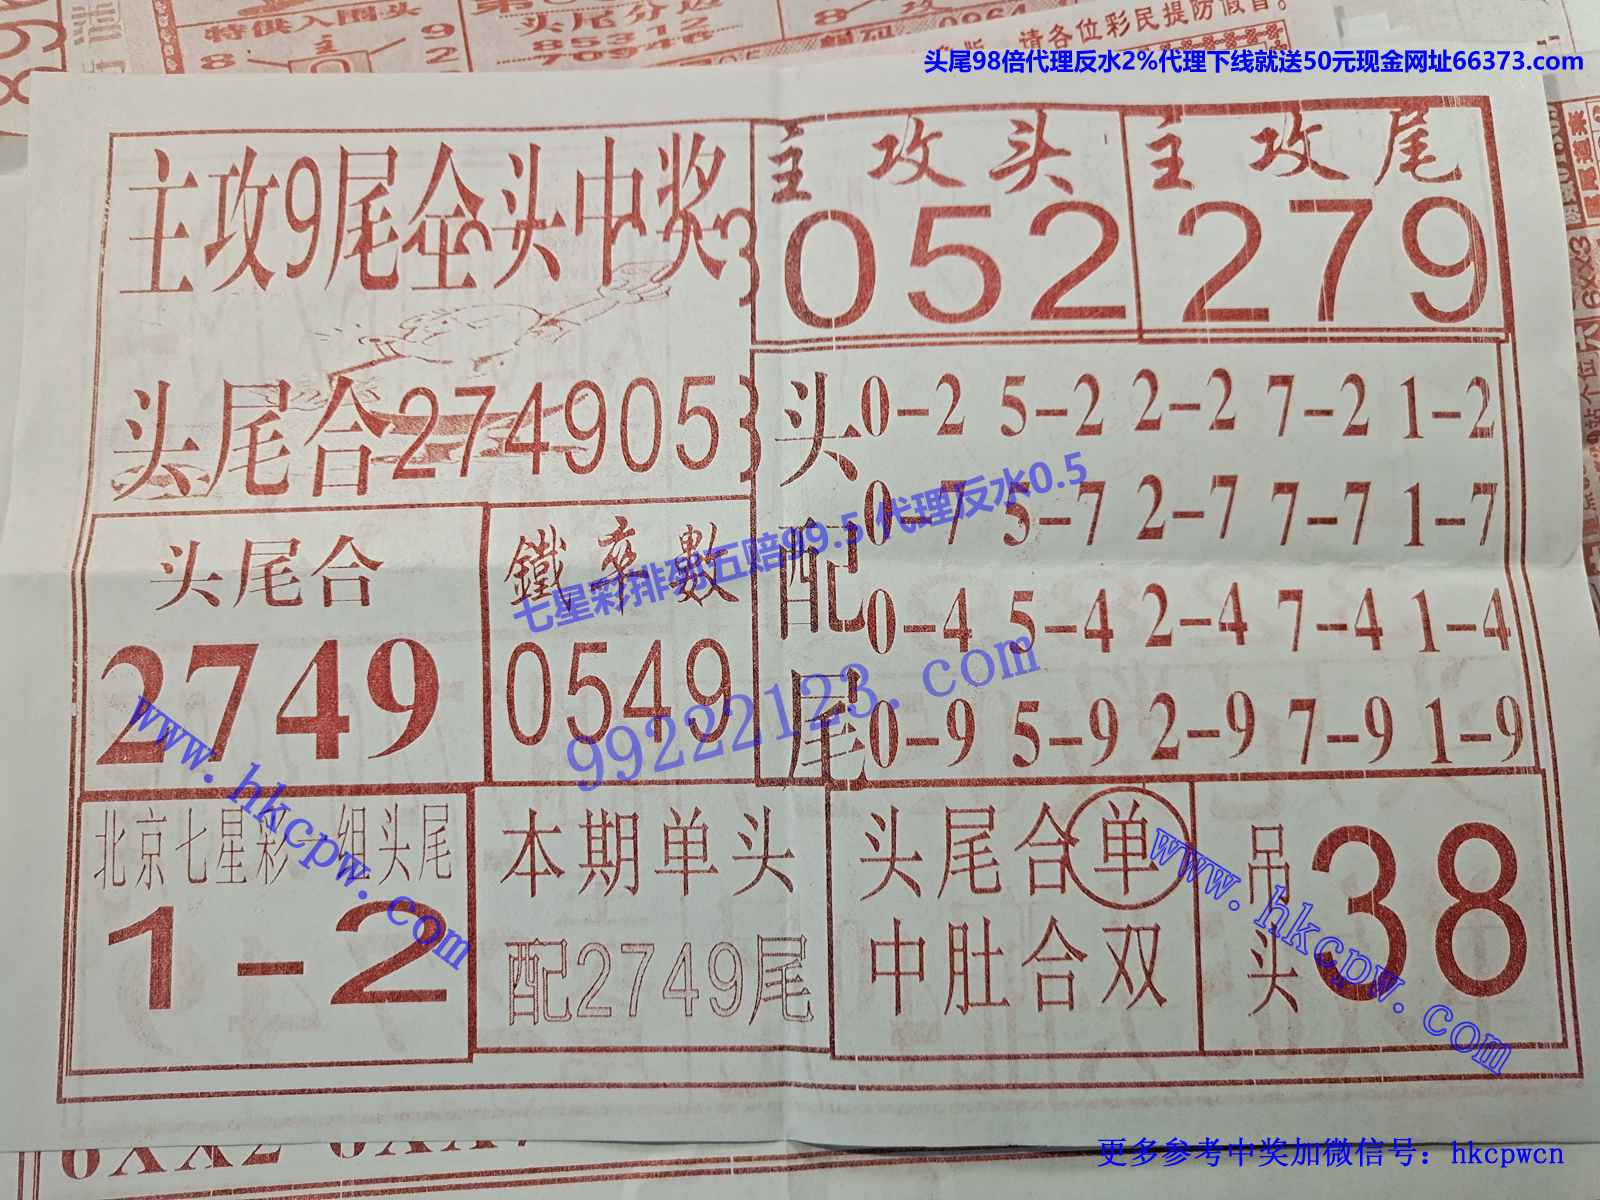 特供入围头
头尾分边
8 9
85312
8 2
70946
请各位彩民提防假冒。
头尾98倍代理反水2%代理下线就送50元现金网址66373.com
主攻9尾全头中奖
主攻头
052
主攻尾
279
头尾合274905
头配尾
0-2 5-2 2-2 7-2 1-2
0-7 5-7 2-7 7-7 1-7
0-4 5-4 2-4 7-4 1-4
0-9 5-9 2-9 7-9 1-9
头尾合
2749
鐵率數
0549
七星彩排列五赔99.5 代理反水0.5
99222123.com
北京七星彩一组头尾
1-2
本期单头
配2749尾
头尾合单
中肚合双
吊头
38
www.hkcpw.com
www.hkcpw.com
更多参考中奖加微信号：hkcpwcn